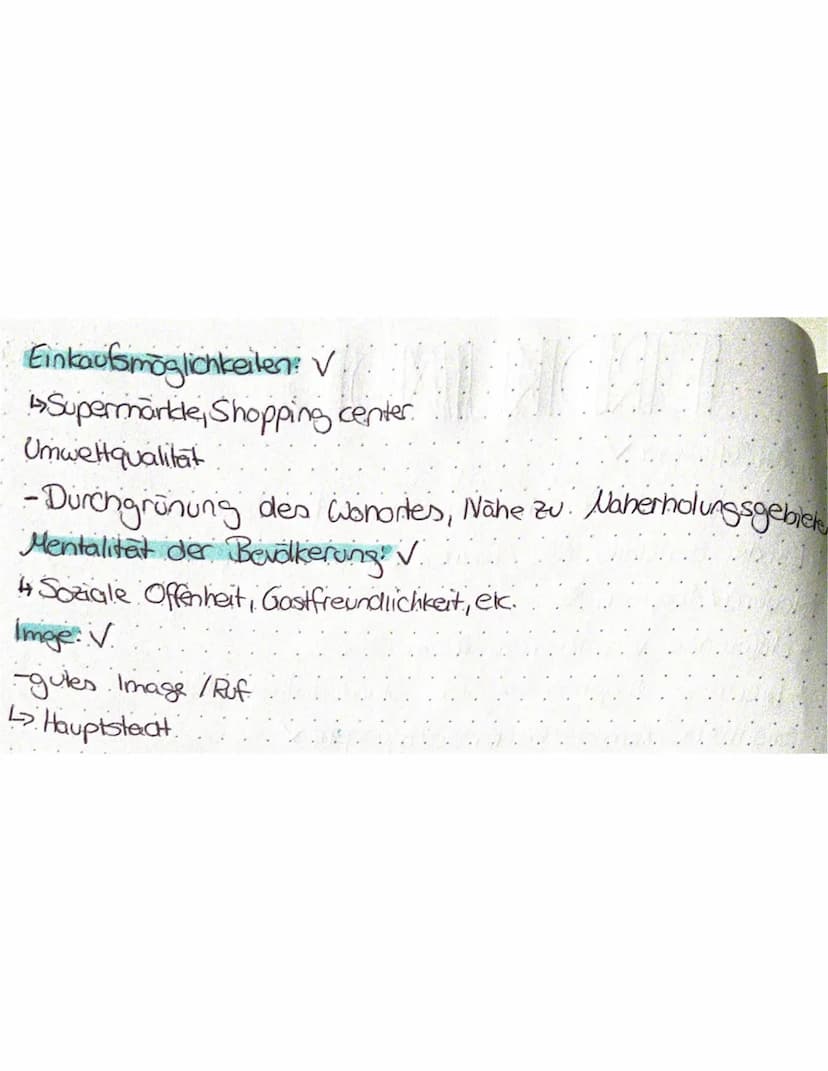 Einkaufsmöglichkeiten: ✓
↳ Supermärkte, Shopping center
Umweltqualität
- Durchgrünung des Wonortes, Nähe zu Naherholungsgebiete
Mentalität der Bevölkerung: ✓
↳ Soziale Offenheit, Gastfreundlichkeit, etc.
Imge: ✓
- gutes Image / Ruf
↳ Hauptstadt